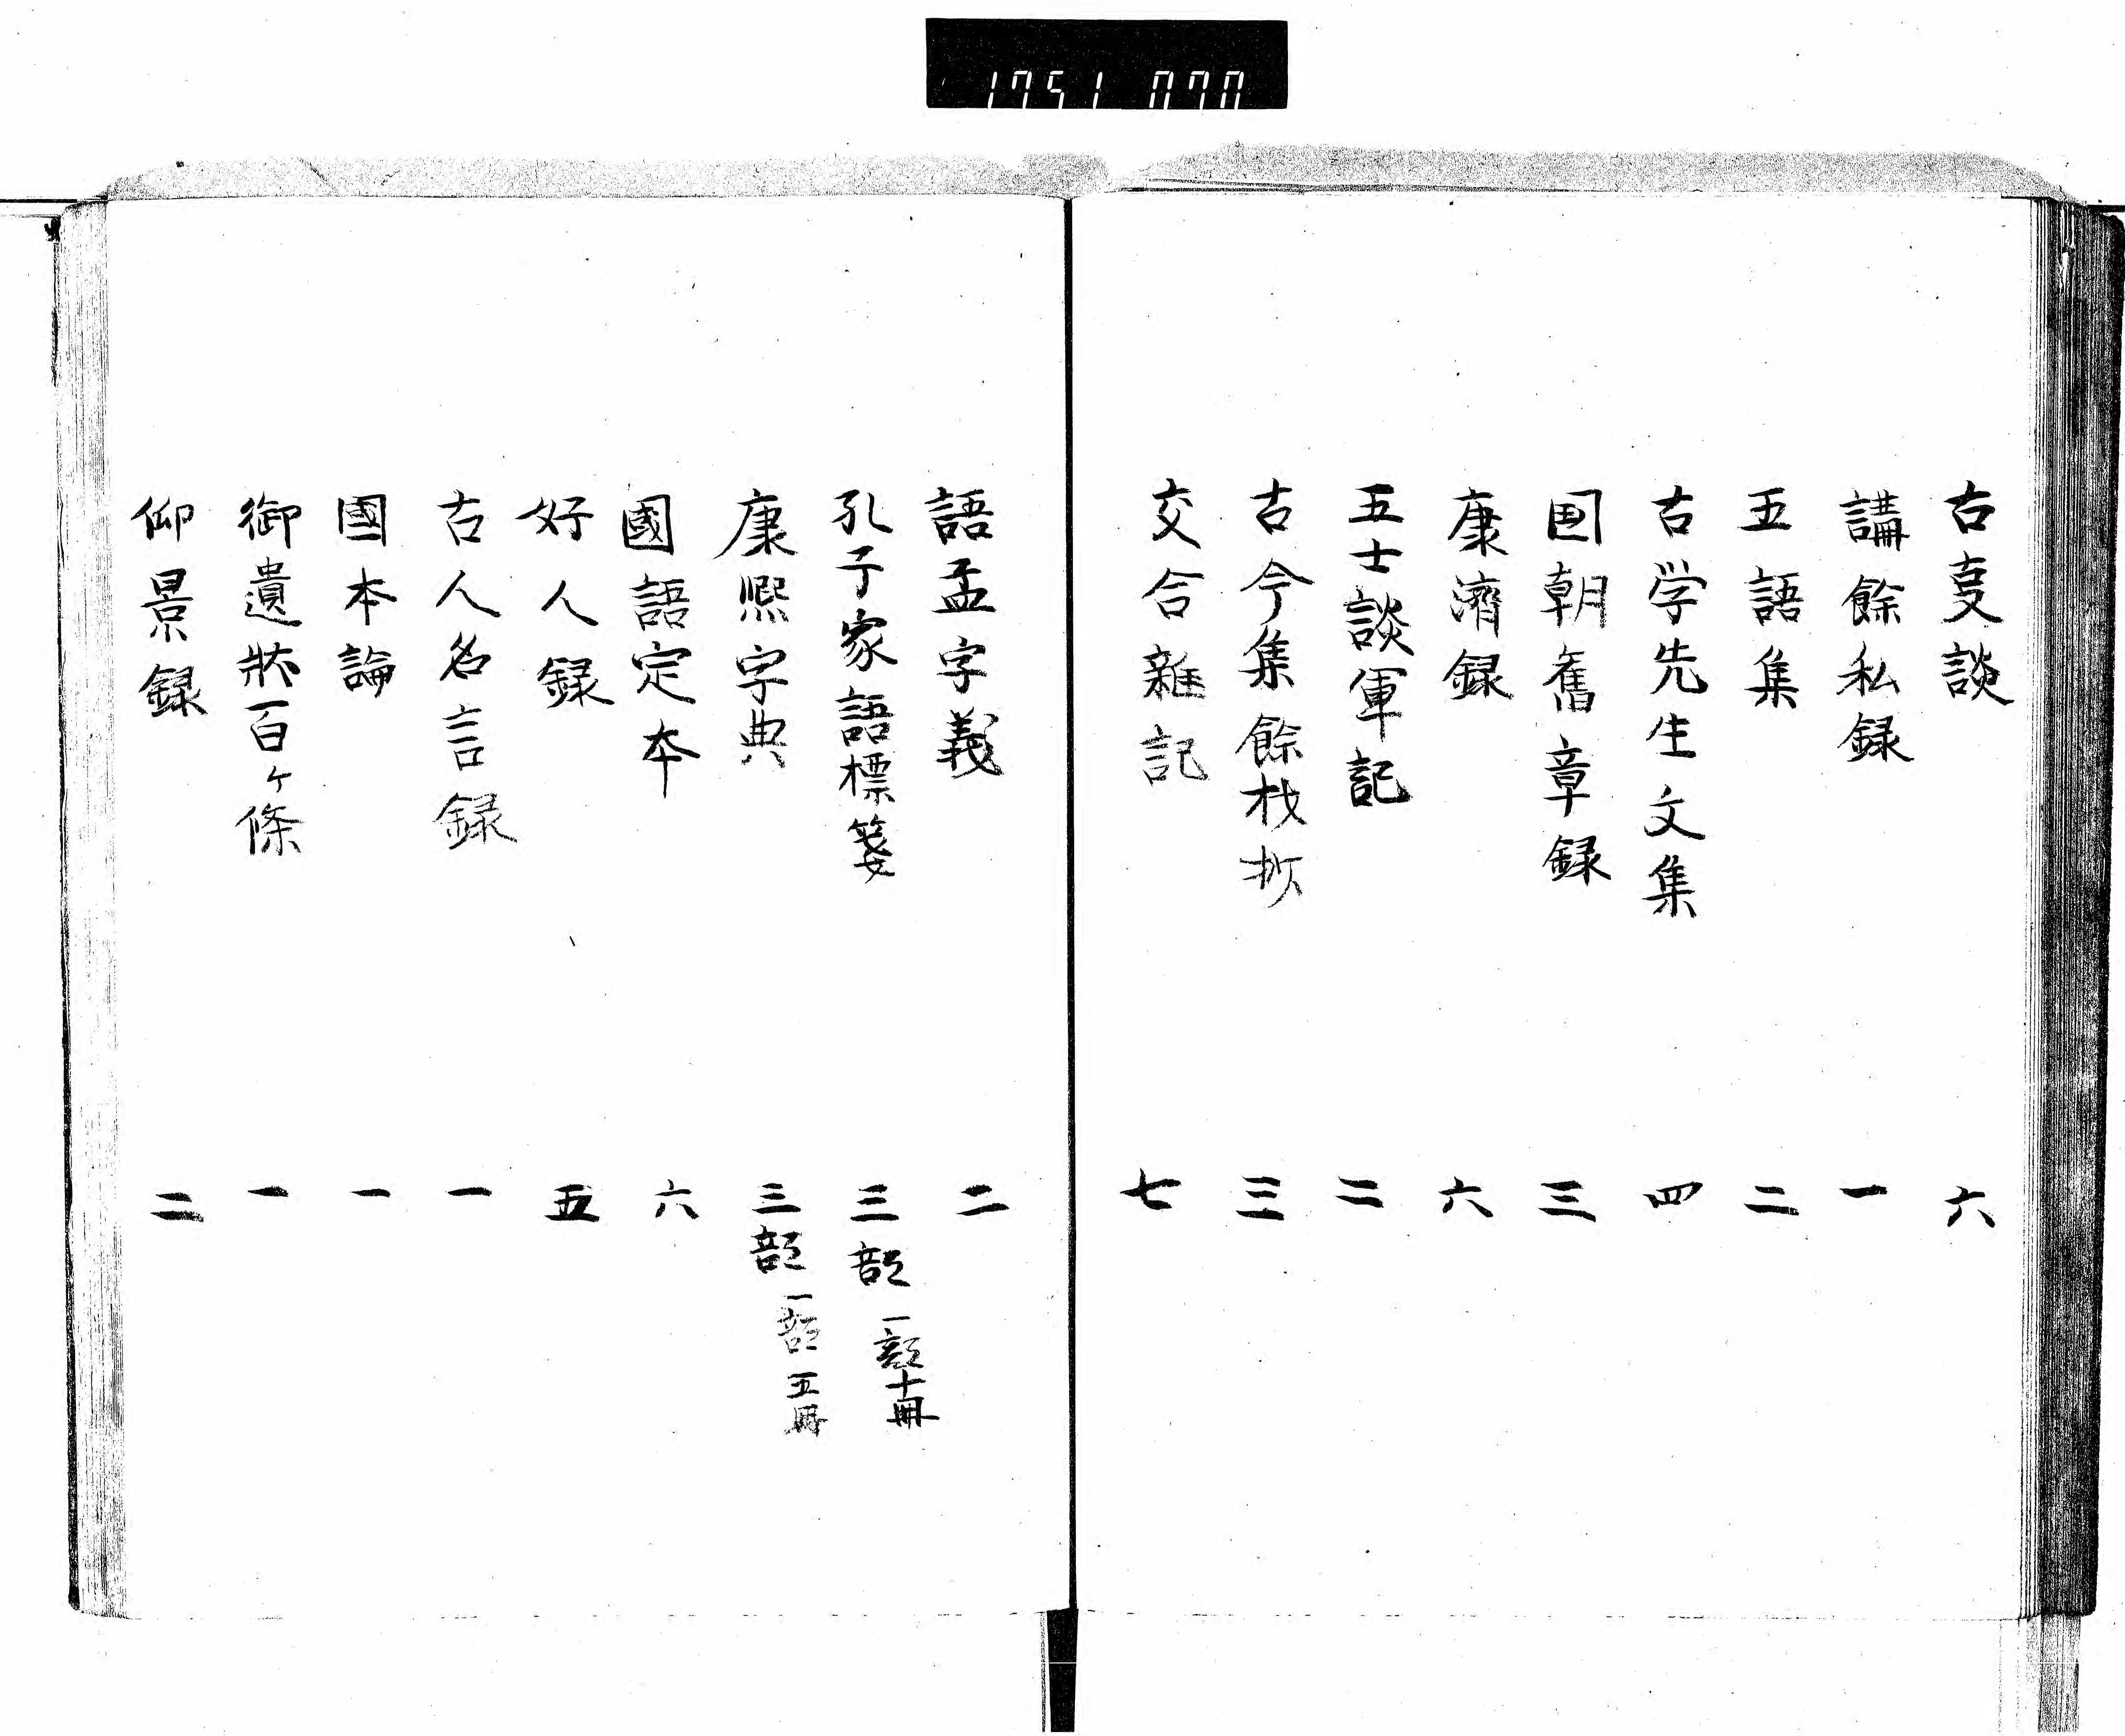 1751 070
古事談 六
講餘私録 一
五語集 二
古学先生文集 四
国朝舊章録 三
康濟録 六
五士談軍記 二
古今集餘材抄 三
交合雜記 七
語孟字義 二
孔子家語標箋 三部 一部十冊
康熙字典 三部 一部五冊
國語定本 六
好人録 五
古人名言録 一
國本論 一
御遺狀百ヶ條 一
仰景録 二